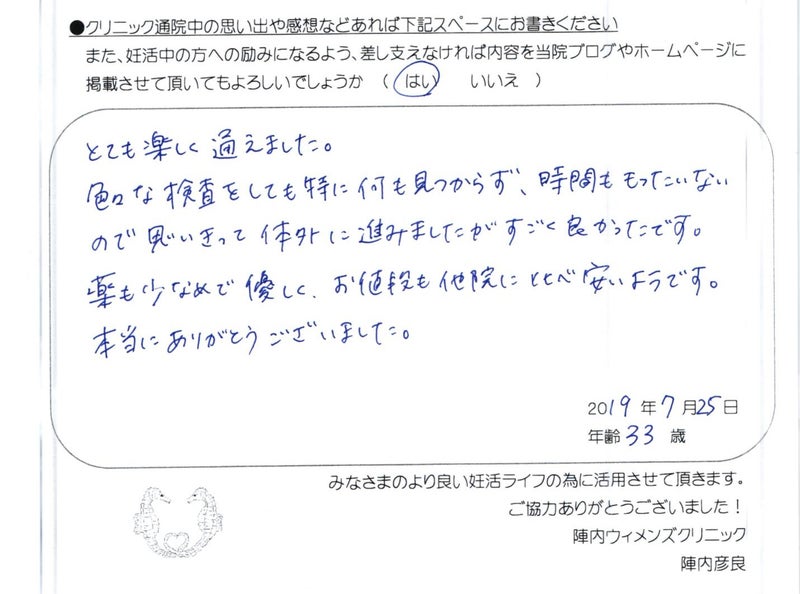 ●クリニック通院中の思い出や感想などあれば下記スペースにお書きください
また、妊活中の方への励みになるよう、差し支えなければ内容を当院ブログやホームページに
掲載させて頂いてもよろしいでしょうか （ はい　いいえ ）
とても楽しく通えました。
色々な検査をしても特に何も見つからず、時間ももったいない
ので思いきって体外に進みましたがすごく良かったです。
薬も少なめで優しく、お値段も他院に比べ安いようです。
本当にありがとうございました。
2019年7月25日
年齢33歳
みなさまのより良い妊活ライフの為に活用させて頂きます。
ご協力ありがとうございました！
陣内ウィメンズクリニック
陣内彦良